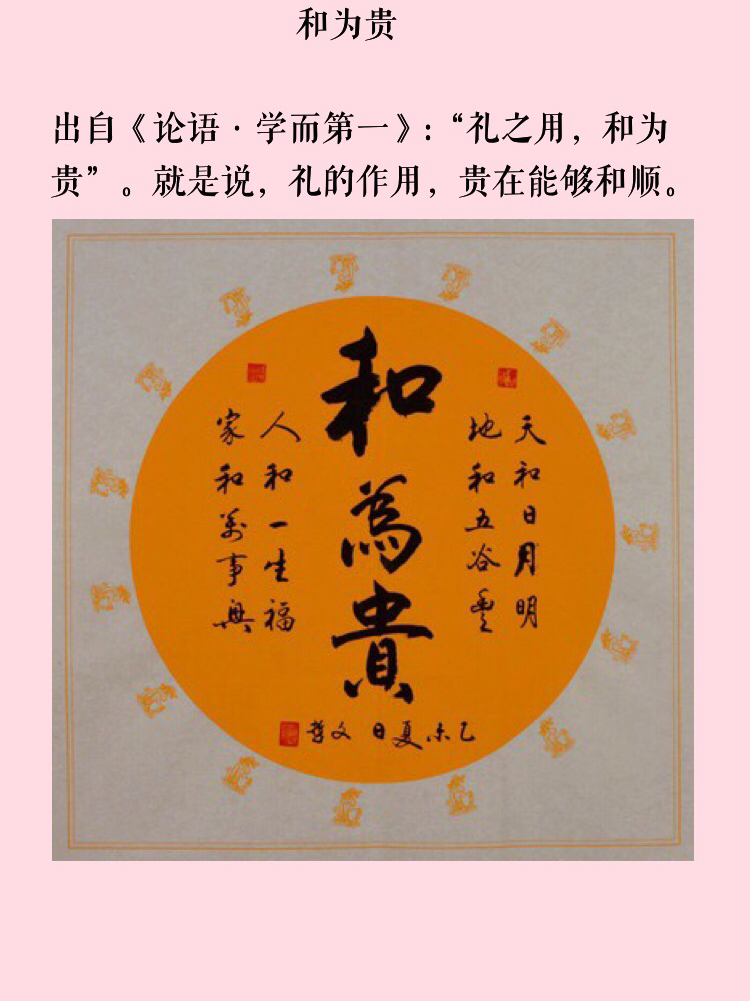 和为贵
出自《论语·学而第一》：“礼之用，和为
贵”。就是说，礼的作用，贵在能够和顺。
和為貴
天和日月明
地和五谷豊
人和一生福
家和万事興
乙未夏日 文哲